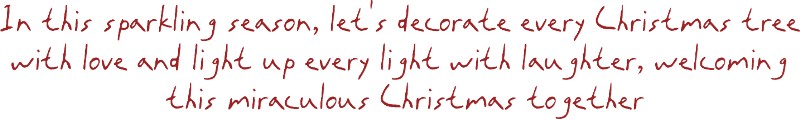 In this sparkling season, let's decorate every Christmas tree
with love and light up every light with laughter, welcoming
this miraculous Christmas together